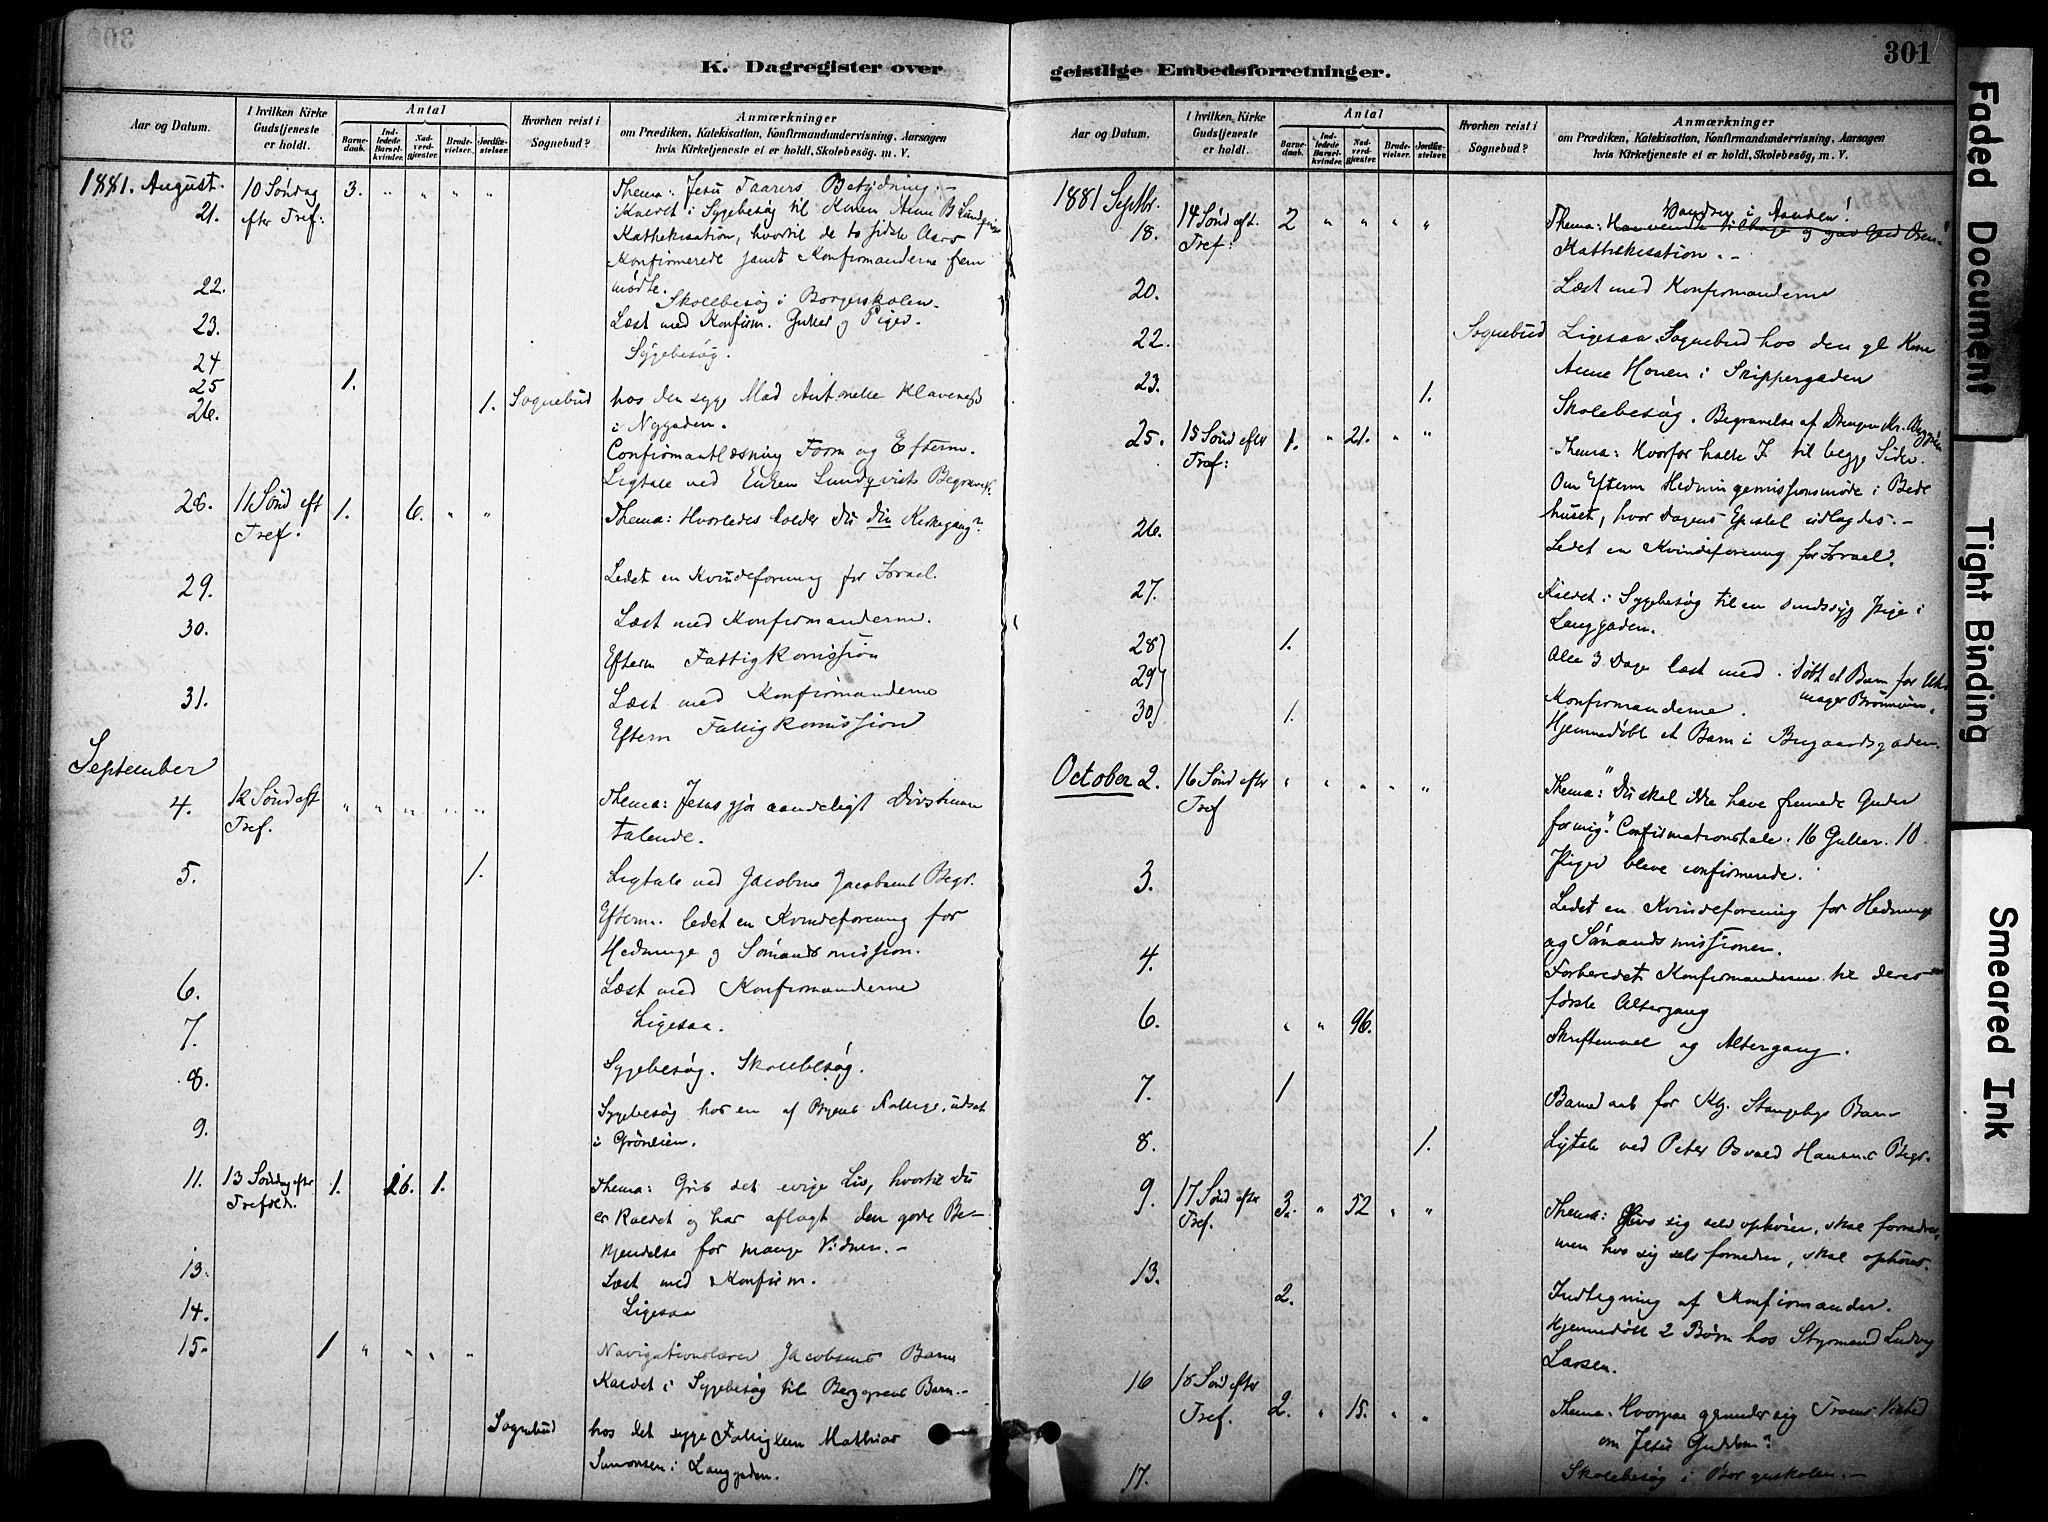 301
K. Dagregister over
Aar og Datum.
I hvilken Kirke Gudstjeneste er holdt.
Antal
Barne-daab.
Ind-ledede Barsel-kvinder.
Nad-verd-gjester.
Brude-vielser.
Jordfæ-stelser.
Hvorhen reist i Sognebud?
Anmærkninger
om Prædiken, Katekisation, Konfirmandundervisning, Aarsagen
hvis Kirketjeneste ei er holdt, Skolebesøg, m. V.
1881. August.
21. 10 Søndag efter Tref: 3. " " " " Thema: Jesu Taarers Betydning. –
Kaldet i Sygebesøg til Konen Anne B Lundqvist
Kathekisation, hvortil de to sidste Aars
Konfirmerede samt Konfirmanderne frem
mødte.
22. Skolebesøg i Borgerskolen.
23. Læst med Konfirm. Gutter og Piger.
24 Sygebesøg.
25 1.
26. 1. Sognebud hos den syge Mad Klaveness
i Nygaden.
Confirmantlæsning Form og Efterm.
Ligtale ved Enken Lundqvists Begravels
28. 11 Sønd eft Tref. 1. 6. " " Thema: Hvorledes holder Du din Kirkegang?
29. Ledet en Kvindeforening for Israel.
30. Læst med Konfirmanderne.
Efterm Fattigkomission
31. Læst med Konfirmanderne
Efterm Fattigkomission
September
4. 12 Sønd eft Tref. " " " " " Thema: Jesus gjør aandeligt Døvstumme
talende.
5. 1. Ligtale ved Jacobine Jacobsens Begr.
Efterm. ledet en Kvindeforening for
Hedninge og Sømandsmission.
6. Læst med Konfirmanderne
7. Ligesaa.
8. Sygebesøg. Skolebesøg.
9. Sygebesøg hos en af Byens Fattige, udsat
i Grønlien.
11. 13 Søndag efter Trefold. 1. 26. 1. Thema: Grib det evige Liv, hvortil Du
er kaldet og har aflagt den gode Be-
kjendelse for mange Vidner. –
13. Læst med Konfirm.
14. Ligesaa
15. 1 " " " " Navigationslærer Jacobsens Barn
Kaldet i Sygebesøg til Berggrens Barn. –
Sognebud hos det syge Fattiglem Mathias
Simonsen i Langgaden.
geistlige Embedsforretninger.
Aar og Datum.
I hvilken Kirke Gudstjeneste er holdt.
Antal
Barne-daab.
Ind-ledede Barsel-kvinder.
Nad-verd-gjester.
Brude-vielser.
Jordfæ-stelser.
Hvorhen reist i Sognebud?
Anmærkninger
om Prædiken, Katekisation, Konfirmandundervisning, Aarsagen
hvis Kirketjeneste ei er holdt, Skolebesøg, m. V.
1881 Septbr.
18. 14 Sønd eft. Tref: 2 " " " " Vandrer i Aanden!
Thema: Han vendte tilbage og gav Gud Æren!
Kathekisation. –
20. Læst med Konfirmanderne
22. Sognebud Ligesaa. Sognebud hos den gl Kone
Anne Honen i Skippergaden
23. 1. Skolebesøg. Begravelse af Drengen Kr.
25. 15 Sønd efter Tref: 1. " 21. " " Thema: Hvorfor halte I til begge Sider.
Om Efterm Hedningemissionsmøde i Bede
huset, hvor Dagens Epistel udlagdes. –
26. Ledet en Kvindeforening for Israel.
27. Kaldet i Sygebesøg til en sindssyg Pige i
Langgaden.
28 1. Alle 3 Dage læst med Konfirmanderne. Døbt et Barn for Uhr
29 mager
30 1. Hjemmedøbt et Barn i Bugaardsgaden.
October 2. 16 Sønd efter Tref " " " " " Thema: "Du skal ikke have fremmede Guder
for mig." Confirmationstale. 16 Gutter. 10
Piger bleve confirmerede.
3. Ledet en Kvindeforening for Hedninge
og Sømandsmissionen.
4. Forberedet Konfirmanderne til deres
første Altergang
6. " " 96. Skriftemaal og Altergang.
7. 1 Barnedaab for Kj. Stangebys Barn
8. 1. Ligtale ved Peter Osvald Hansens Begr.
9. 17 Sønd efter Tref. 3. " 52 " " Thema: Hvo sig selv ophøier, skal fornedres,
men hvo sig selv fornedrer, skal ophøies.
13. Indtegning af Konfirmander.
2. Hjemmedøbt 2 Børn hos Styrmand Ludvig
Larsen.
16 18 Sønd efter Tref. 2. " 15. " " Thema: Hvorpaa grunder sig Troens Vished
om Jesu Guddom?
17. Skolebesøg i Borgerskolen. –
Faded Document
Tight Binding
Smeared Ink